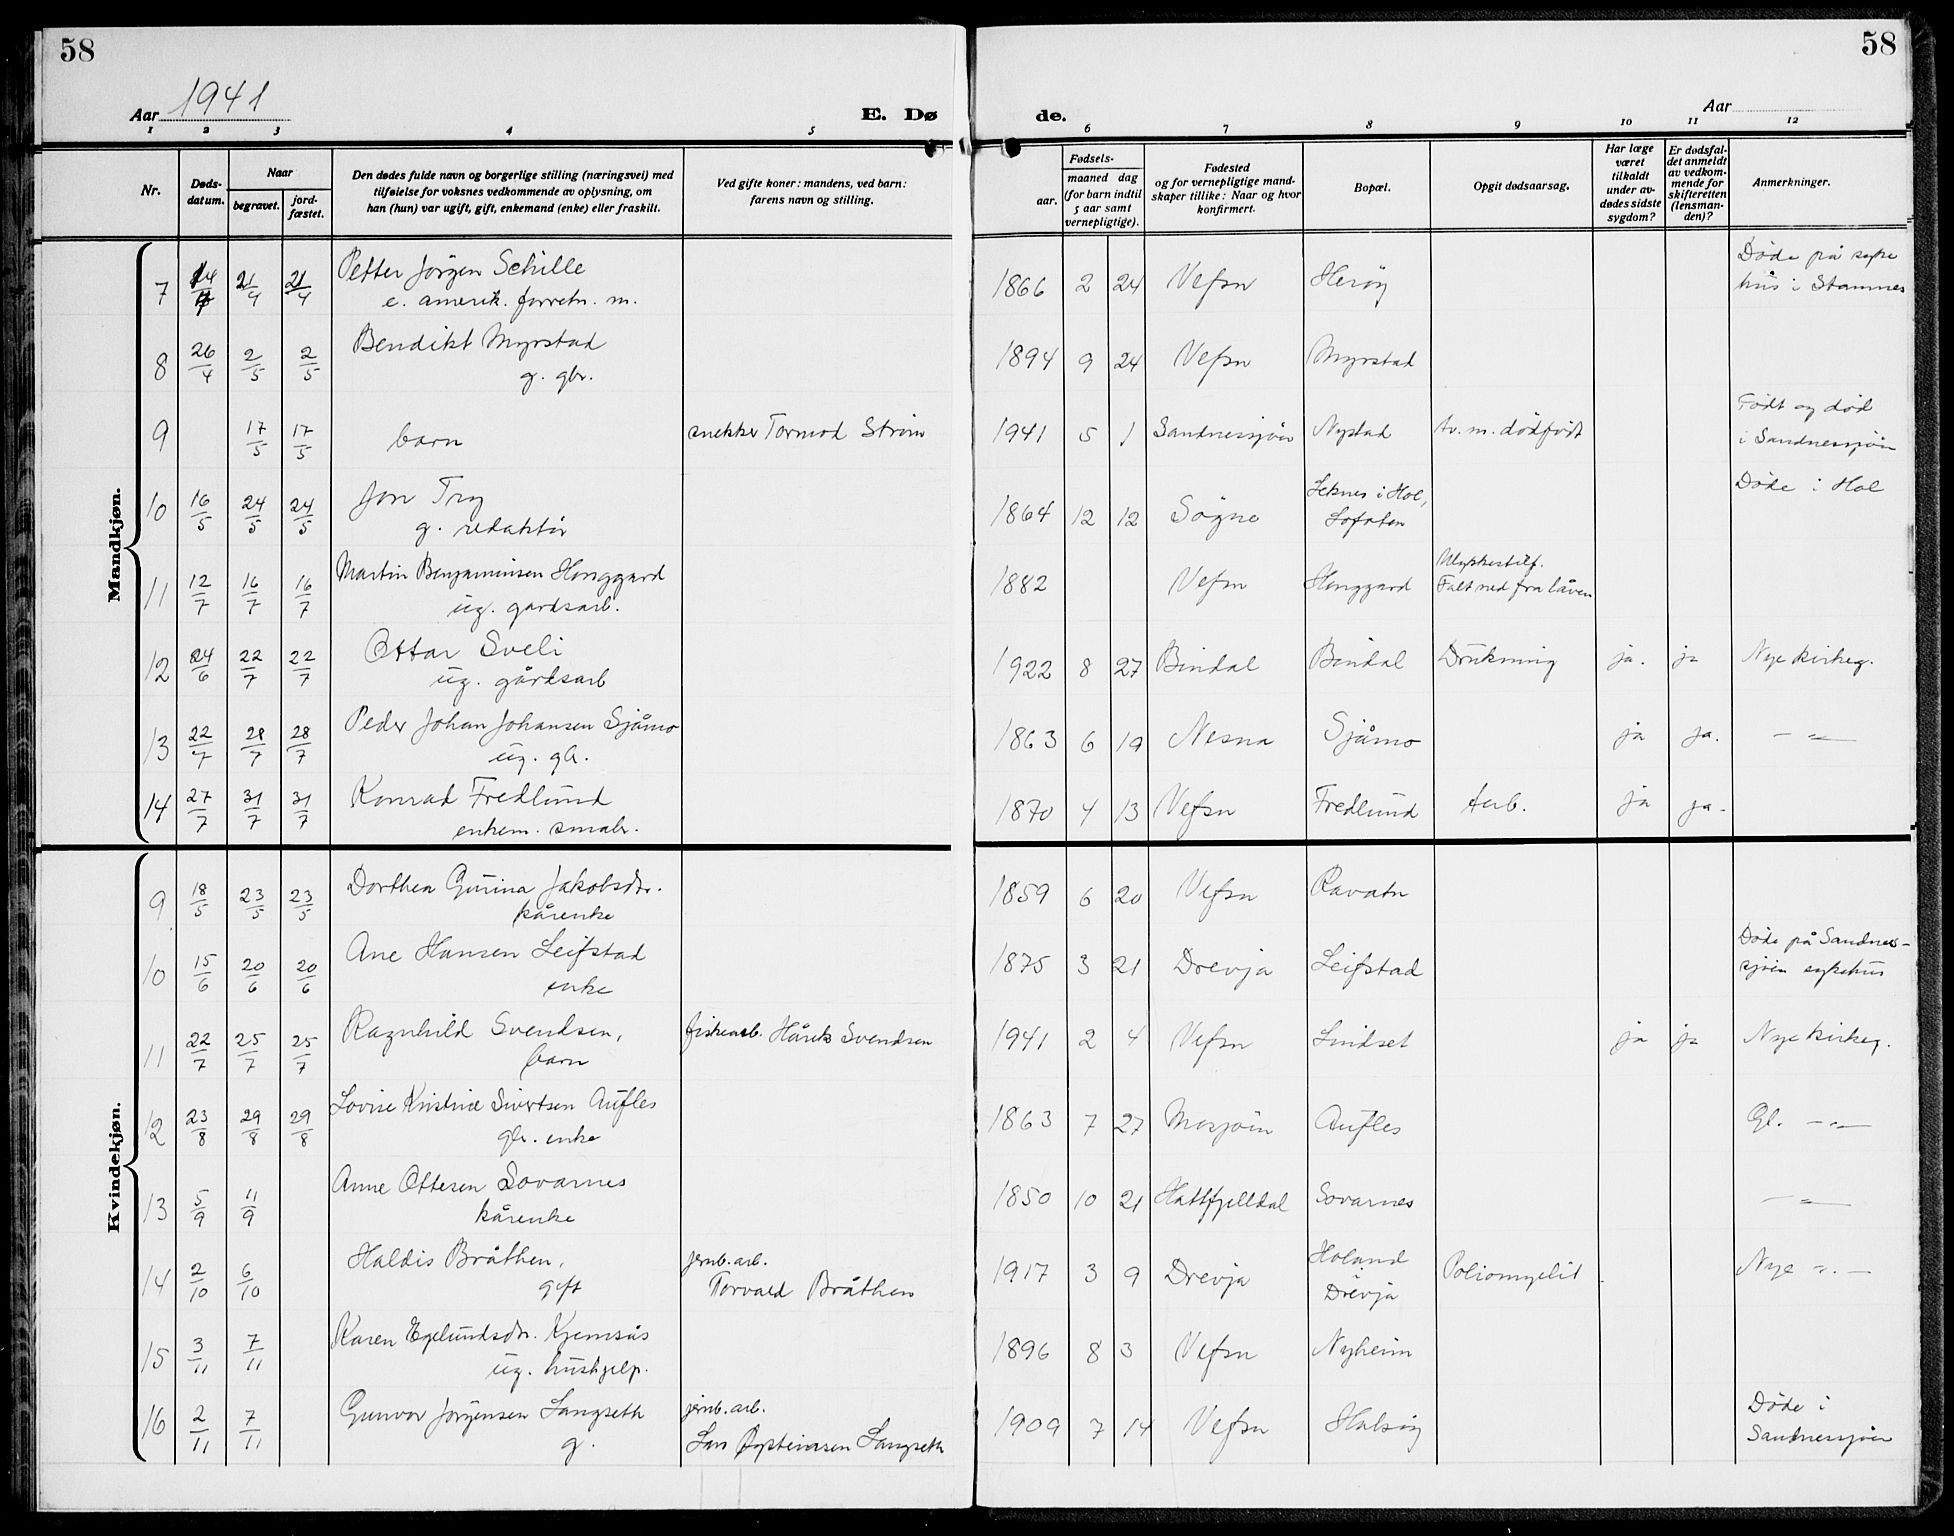 58
58
Aar 1941
E. Dø
de.
Aar
1 2 3 4 5
6 7 8 9 10 11 12
Nr.
Døds-
datum.
Naar
begravet.
jord-
fæstet.
Den dødes fulde navn og borgerlige stilling (næringsvei) med
tilføielse for voksnes vedkommende av oplysning, om
han (hun) var ugift, gift, enkemand (enke) eller fraskilt.
Ved gifte koner: mandens, ved barn:
farens navn og stilling.
Fødsels-
aar.
maaned dag
(for barn indtil
5 aar samt
vernepligtige).
Fødested
og for vernepligtige mand-
skaper tillike: Naar og hvor
konfirmert.
Bopæl.
Opgit dødsaarsag.
Har læge
været
tilkaldt
under av-
dødes sidste
sygdom?
Er dødsfal-
det anmeldt
av vedkom-
mende for
skifteretten
(lensman-
den)?
Anmerkninger.
Mandkjøn.
7 14/4 21/4 21/4 Petter Jørgen Schille 1866 2 24 Vefsn Herøy Døde på syke
e. amerik. forretn. m. hus i Stamnes
8 26/4 2/5 2/5 Bendikt Myrstad 1894 9 24 Vefsn Myrstad
g. gbr.
9 17/5 17/5 barn snekker Tormod Strøm 1941 5 1 Sandnessjøen Nystad Av. m. dødfødt Født og død
i Sandnessjøen
10 16/5 24/5 24/5 Jon Try 1864 12 12 Søgne Leknes i Hol, Døde i Hol
g. redaktør Lofoten
11 12/7 16/7 16/7 Martin Benjaminsen Honggard 1882 Vefsn Honggard Ulykkestilf.
ug. gardsarb. Falt ned fra låven
12 24/6 22/7 22/7 Ottar Sveli 1922 8 27 Bindal Bindal Drukning ja. ja Nye kirkeg.
ug. gårdsarb
13 22/7 28/7 28/7 Peder Johan Johansen Sjåmo 1863 6 19 Nesna Sjåmo ja ja. – " –
ug. gb.
14 27/7 31/7 31/7 Konrad Fredlund 1870 4 13 Vefsn Fredlund tub. ja ja.
enkem. småbr.
Kvindekjøn.
9 18/5 23/5 23/5 Dorthea Gurina Jakobsdtr. 1859 6 20 Vefsn Ravatn
kårenke
10 15/6 20/6 20/6 Ane Hansen Leifstad 1875 3 21 Drevja Leifstad Døde på Sandnes-
enke sjøen sykehus
11 22/7 25/7 25/7 Ragnhild Svendsen, fiskearb. Hårek Svendsen 1941 2 4 Vefsn Lindset ja ja Nye kirkeg.
barn
12 23/8 29/8 29/8 Lovise Kristine Sivertsen Aufles 1863 7 27 Mosjøen Aufles Gl. – " –
gbr. enke
13 5/9 11/9 Anne Ottesen Sovarnes 1850 10 21 Hattfjelldal Sovarnes – " –
kårenke
14 2/10 6/10 Haldis Bråthen, jernb. arb. 1917 3 9 Drevja Holand Poliomyelit Nye – " –
gift Torvald Bråthen Drevja
15 3/11 7/11 Karen Egelundsdtr. Kjemsås 1896 8 3 Vefsn Nyheim
ug. hushjelp.
16 2/11 7/11 Gunvor Jørgensen Langseth jernb. arb. 1909 7 14 Vefsn Halsøy Døde i
g. Langseth Sandnessjøen